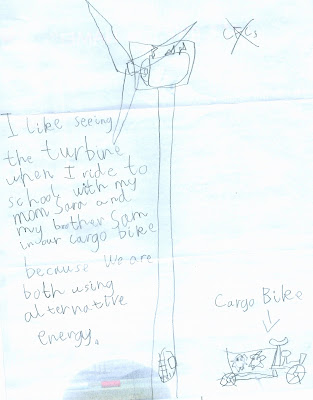 CFCs
I like seeing
the turbine
when I ride to
school with my
mom Sara and
my brother Sam
in our cargo bike
because we are
both using
alternative
energy.
Cargo Bike